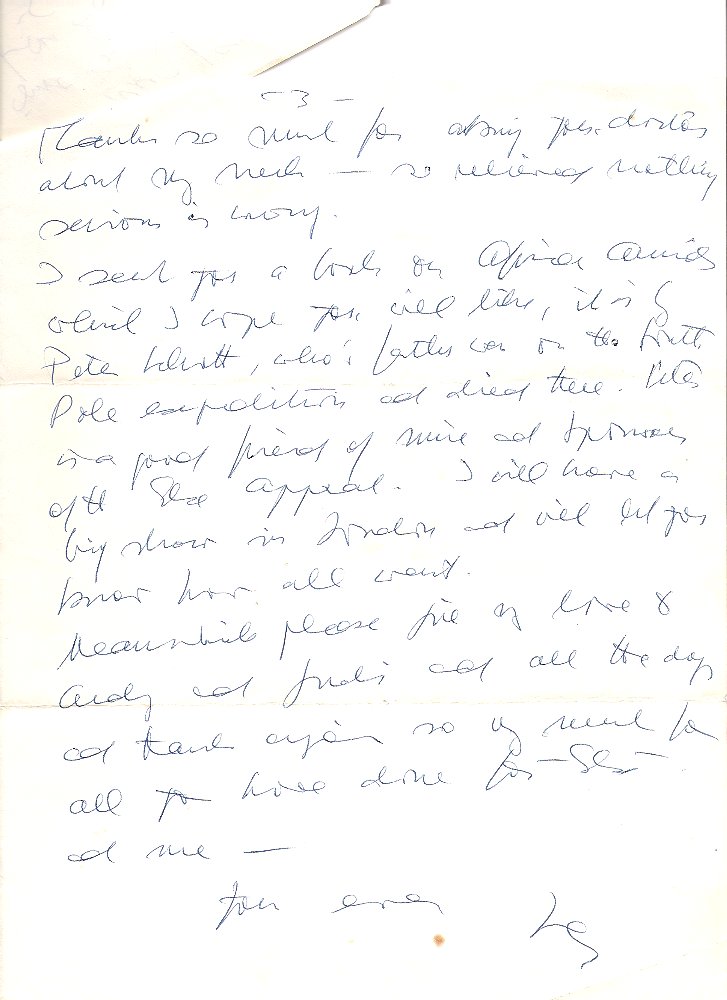 - 3 -
Thanks so much for asking your doctor
about my neck — so relieved nothing
serious is wrong.
I sent you a book on African
which I hope you will like, it is by
Peter Scott, who's father was on the South
Pole expedition and died there. Peter
is a good friend of mine and sponsors
of the Elsa Appeal. I will have a
big show in London and will let you
know how all went.
Meanwhile please give my love to
Andy and and all the dogs
and thank again so very much for
all you have done for - Elsa -
and me —
Your ever Joy